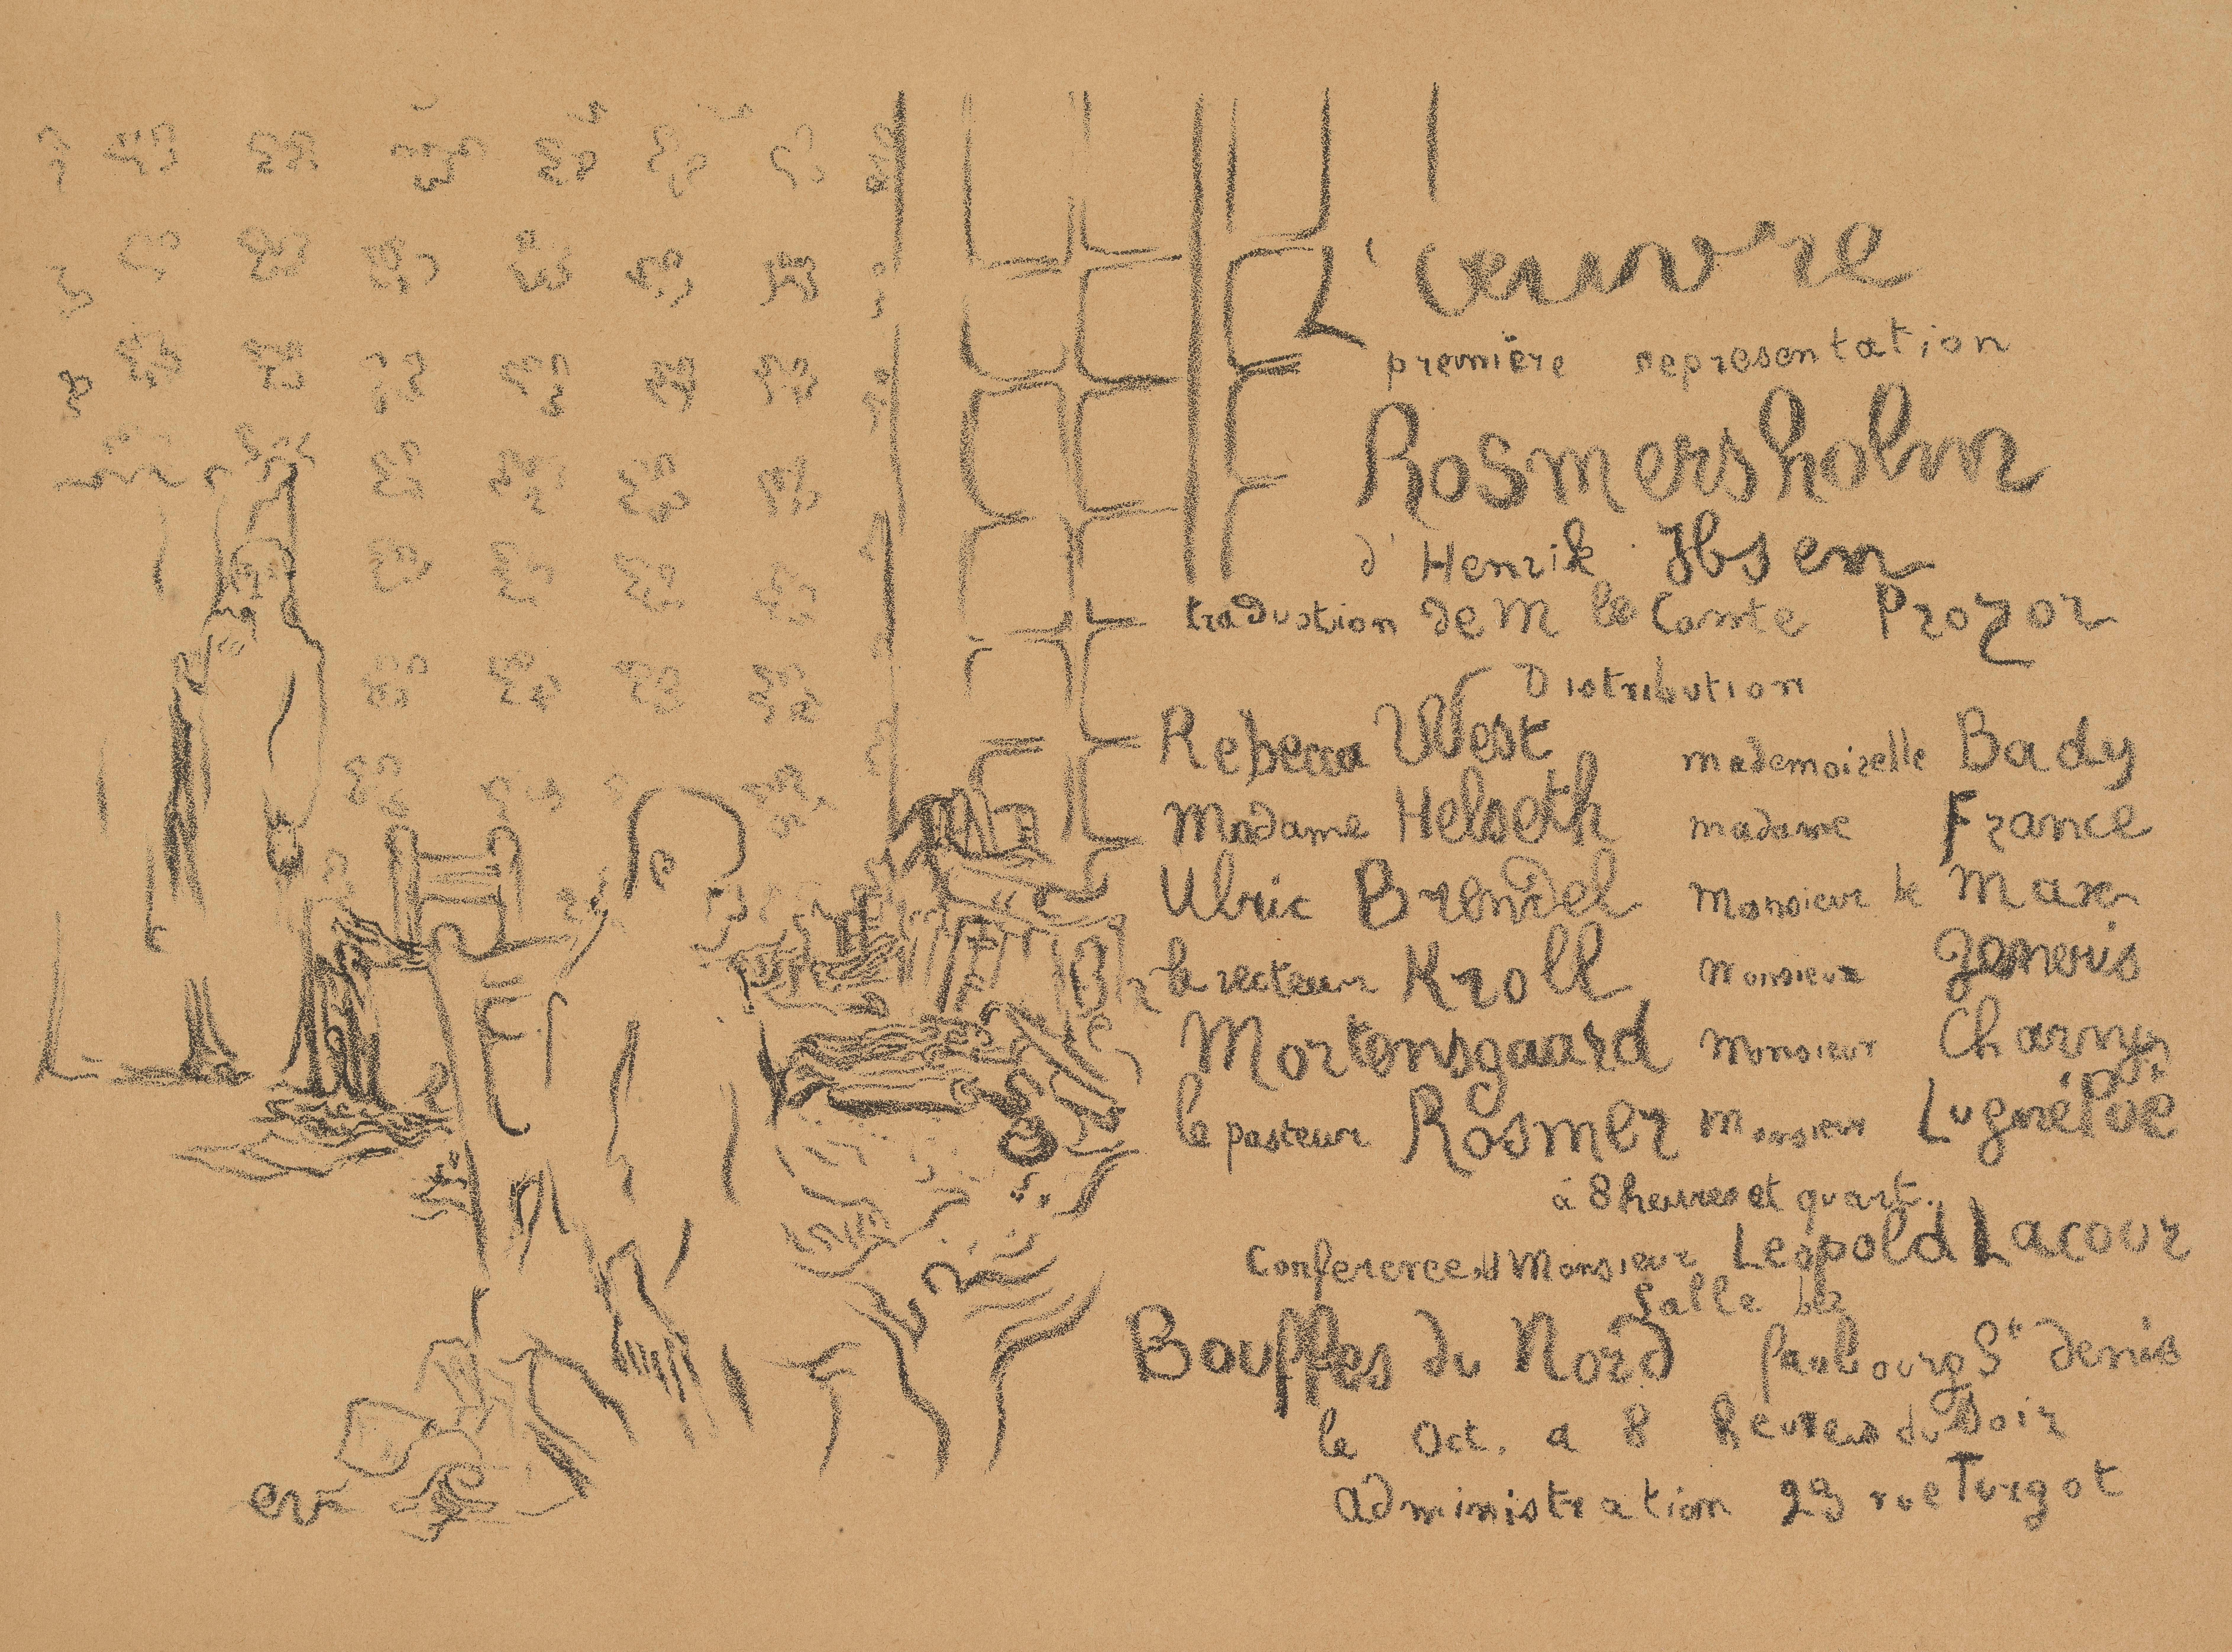 L'Œuvre
première representation
Rosmersholm
d' Henrik Ibsen
traduction de M le Comte Prozor
Distribution
Rebecca West mademoiselle Bady
Madame Helseth madame France
Ulric Brendel Monsieur de Max
le recteur Kroll Monsieur
Mortensgaard Monsieur Charny
le pasteur Rosmer Monsieur Lugné Poë
à 8 heures et quart.
Conference de Monsieur Leopold Lacour
Salle des
Bouffes du Nord faubourg St denis
le Oct. a 8 heures du Soir
Administration 23 rue Turgot
ev